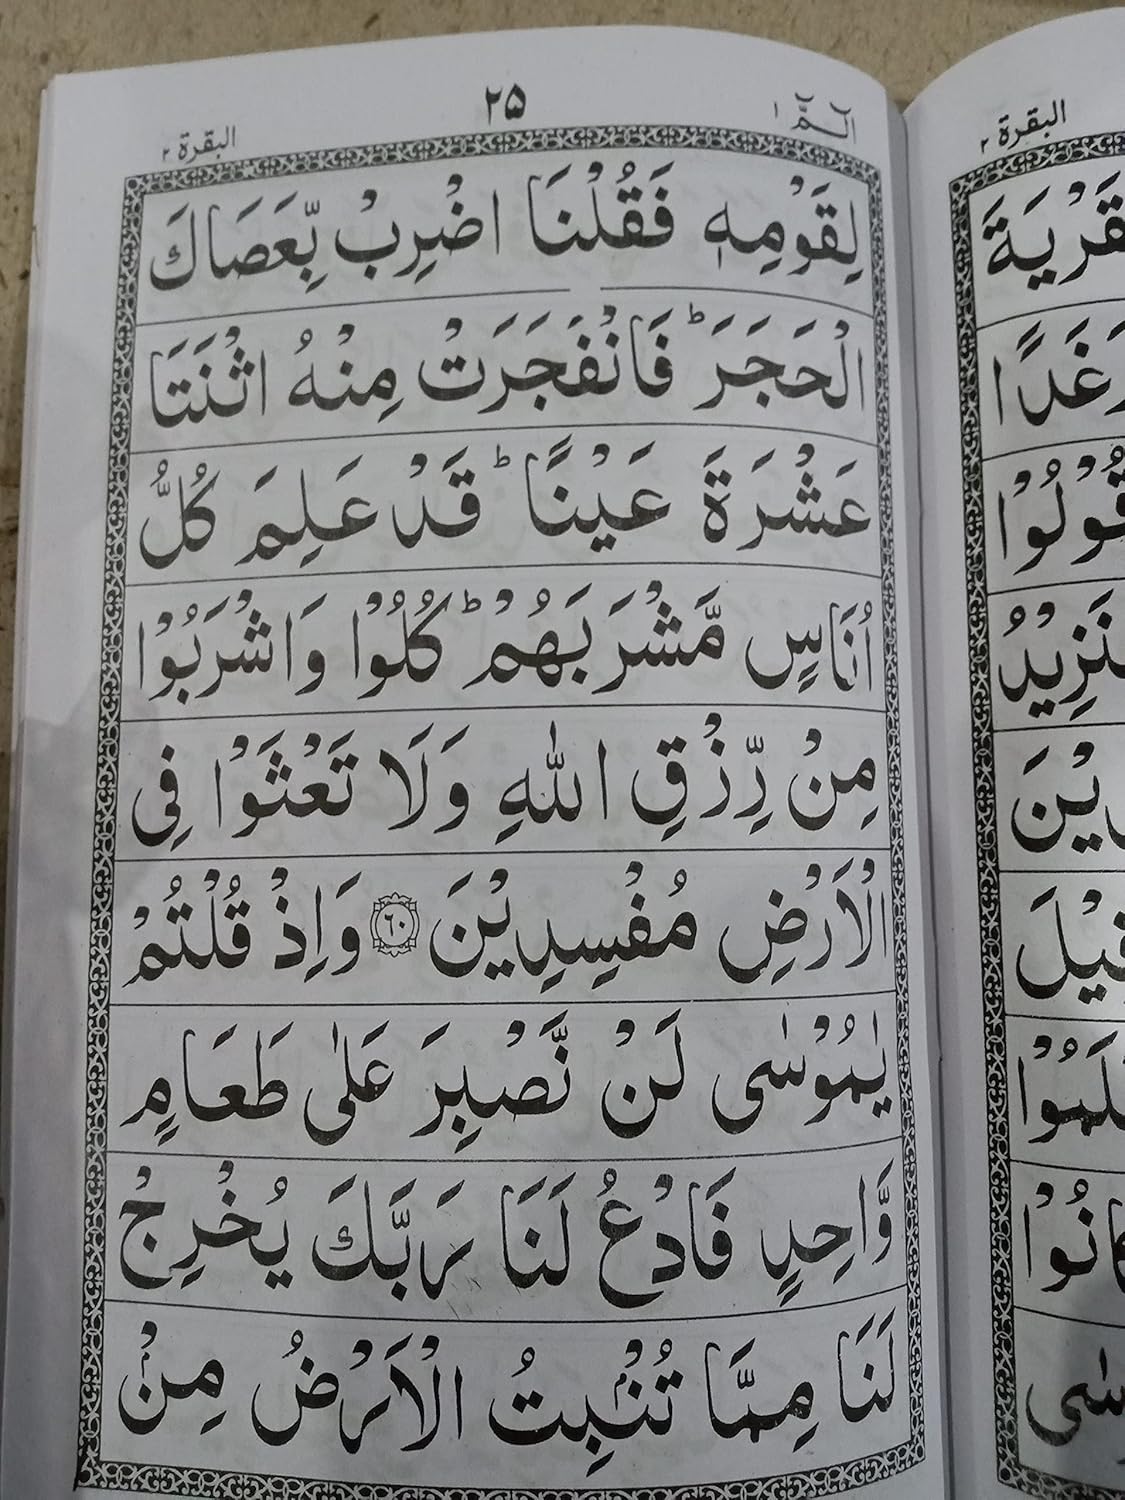 الٓـمّٓ ١
٢٥
البقرة ٢
لِقَوْمِهٖ فَقُلْنَا اضْرِبْ بِّعَصَاكَ
الْحَجَرَ ؕ فَانْفَجَرَتْ مِنْهُ اثْنَتَا
عَشْرَةَ عَيْنًا ؕ قَدْ عَلِمَ كُلُّ
اُنَاسٍ مَّشْرَبَهُمْ ؕ كُلُوْا وَاشْرَبُوْا
مِنْ رِّزْقِ اللّٰهِ وَلَا تَعْثَوْا فِی
الْاَرْضِ مُفْسِدِيْنَ ٦٠ وَاِذْ قُلْتُمْ
يٰمُوْسٰى لَنْ نَّصْبِرَ عَلٰى طَعَامٍ
وَّاحِدٍ فَادْعُ لَنَا رَبَّكَ يُخْرِجْ
لَنَا مِمَّا تُنْۢبِتُ الْاَرْضُ مِنْۢ
البقرة ٢
قَرْيَةَ
غَدًا
قُوْلُوْا
نَزِيْدُ
يْنَ
قِيْلَ
لَمُوْا
انُوْا
سٰى